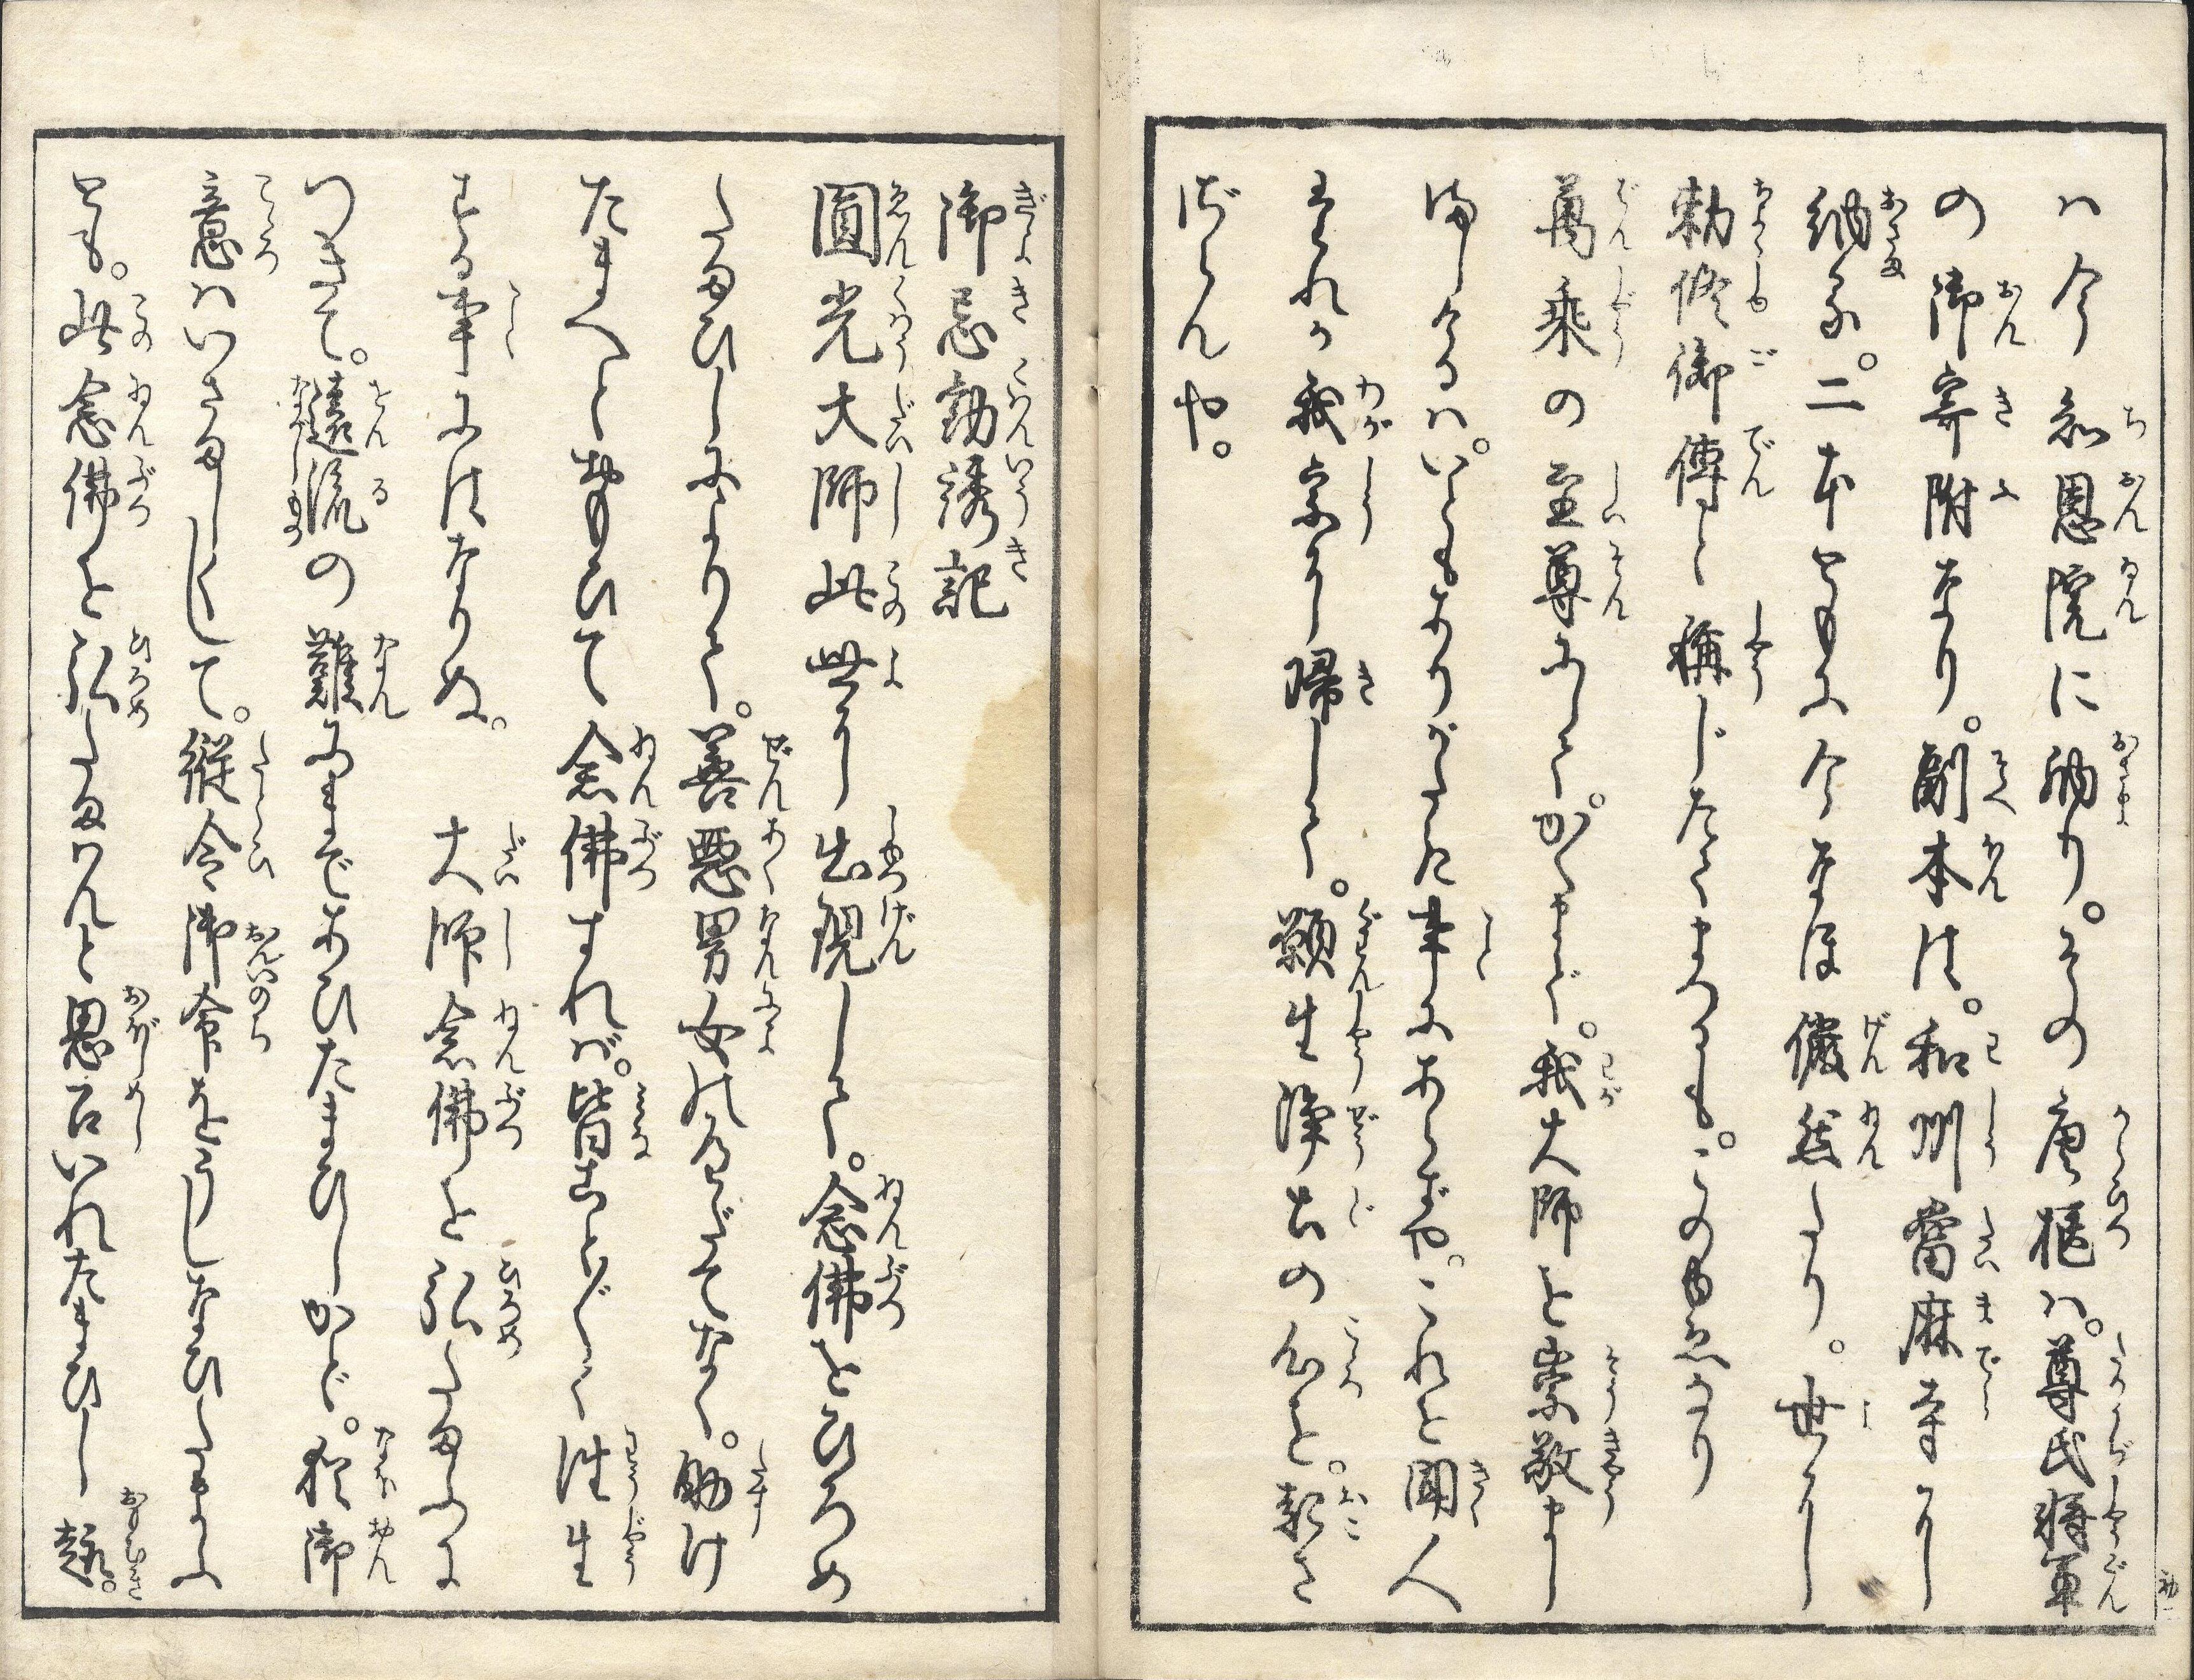 ハ今知恩院に納り。その唐櫃ハ。尊氏将軍
の御寄附なり。副本は。和州當麻寺に
納る。二本ともに今なほ儼然たり。世に
勅修御傳と稱じたてまつるも。このゆゑなり
萬乗の至尊にして。かくまで。我大師を崇敬まし
ましけるハ。いともありがたき事にあらずや。これを聞人
たれか我宗に帰して。願生浄土の心を。起さ
ざらんや。
御忌勧誘記
圓光大師此世に出現して。念佛をひろめ
たまひしによりて。善悪男女のへだてなく。助け
たまへとおもひて念佛すれば。皆ことごとく往生
する事にはなりぬ。 大師念佛を弘たまふに
つきて。遠流の難にまであひたまひしかど。猶御
意ハいさましくして。縦令御命をうしなひたまふ
とも。此念佛を弘たまはんと思召いれたまひし趣。